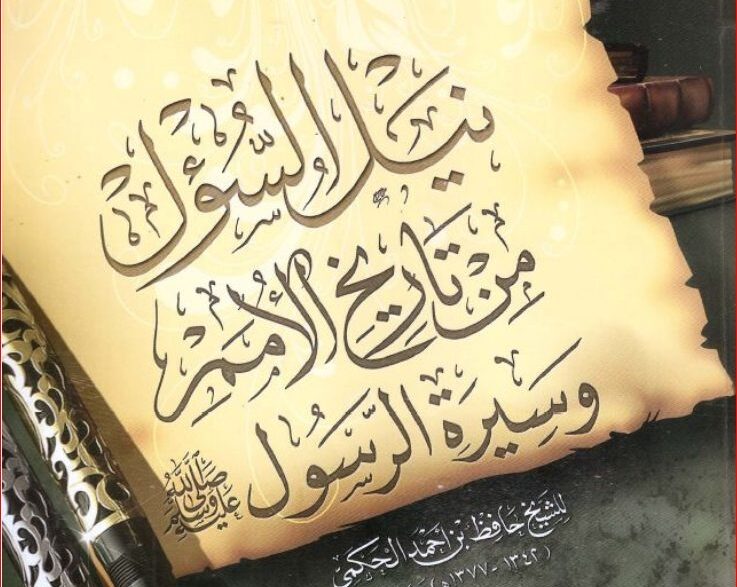 نَيْلُ السُّؤْلِ
مِنْ تَارِيخِ الأُمَمِ
وَسِيرَةِ الرَّسُولِ صَلَّى اللَّهُ عَلَيْهِ وَسَلَّمَ
للشيخ حافظ بن أحمد الحكمي
(١٣٤٢ - ١٣٧٧ه)